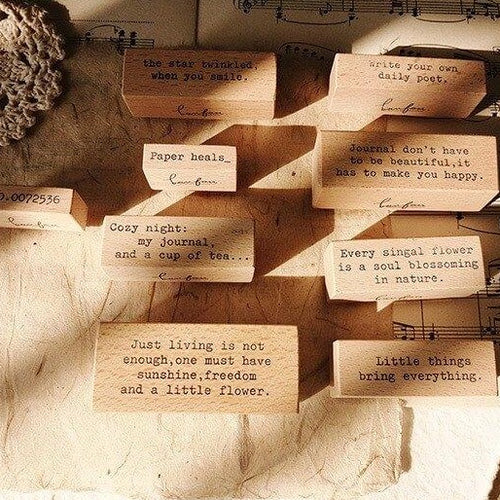 the star twinkled,
when you smile.
write your own
daily poet.
Paper heals_
Journal don't have
to be beautiful,it
has to make you happy.
0.0072536
Cozy night:
my journal,
and a cup of tea...
Every singal flower
is a soul blossoming
in nature.
Just living is not
enough,one must have
sunshine,freedom
and a little flower.
Little things
bring everything.